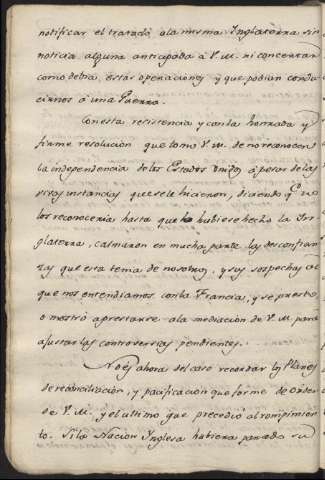 notificar el tratado ala misma Inglaterra sin
noticia alguna anticipada á V. M. ni concertar
como debia, estas operaciones y que podian condu
cirnos á una Guerra.
Con esta resistencia y con la honrada y
firme resolucion que tomó V. M. de no reconocer
la independencia de los Estados Unidos á pesar de las
instancias que se le hicieron, diciendo q.e no
los reconoceria hasta que lo hubiese hecho la In-
glaterra, calmaron en mucha parte las desconfian
zas que esta tenia de nosotros, y sus sospechas de
que nos entendiamos con la Francia, y se prestó,
o mostró aprestarse ala mediacion de V. M. para
ajustar las controversias pendientes.
No es ahora del caso recordar los Planes
de reconciliacion, y pacificacion que forme de orden
de V. M. y el ultimo que precedió al rompimien
to. Si la Nacion Inglesa hubiera parado su